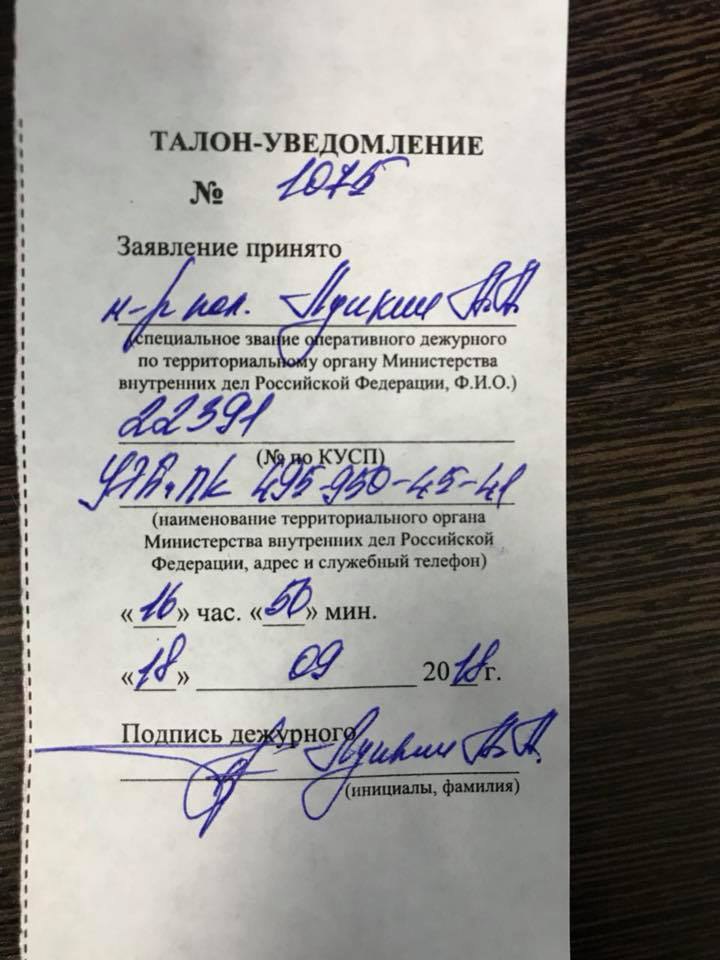 ТАЛОН-УВЕДОМЛЕНИЕ
№ 1075
Заявление принято
пол. А.А.
(специальное звание оперативного дежурного
по территориальному органу Министерства
внутренних дел Российской Федерации, Ф.И.О.)
22391
(№ по КУСП)
495-950-45-41
(наименование территориального органа
Министерства внутренних дел Российской
Федерации, адрес и служебный телефон)
«16» час. «50» мин.
«18» 09 2018г.
Подпись дежурного
А.А.
(инициалы, фамилия)